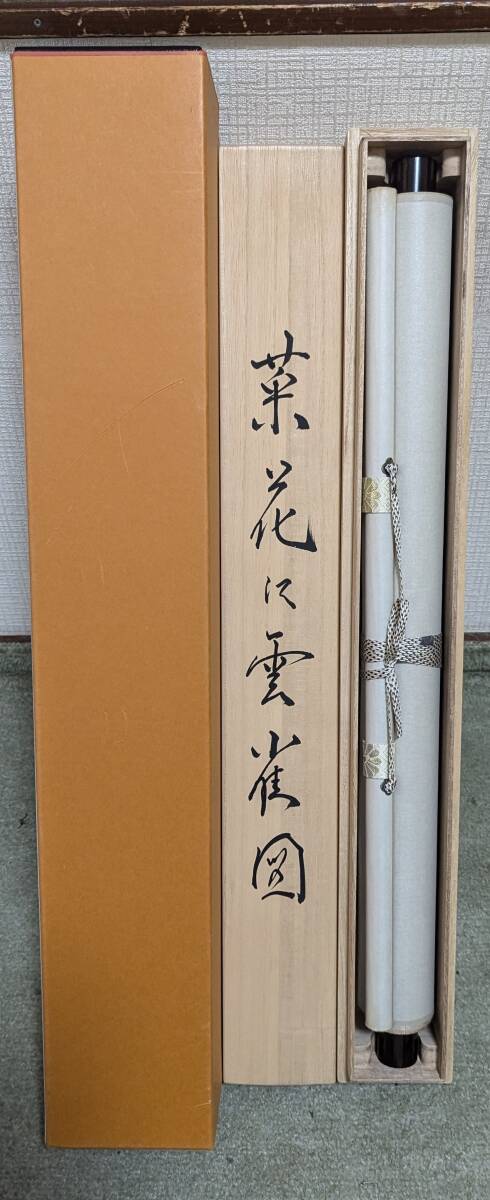 菜花に雲雀図